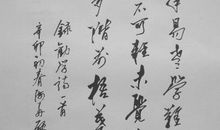 年易老學難
不可輕未覺
夢階前梧葉
錄勸學詩一首
辛卯初春